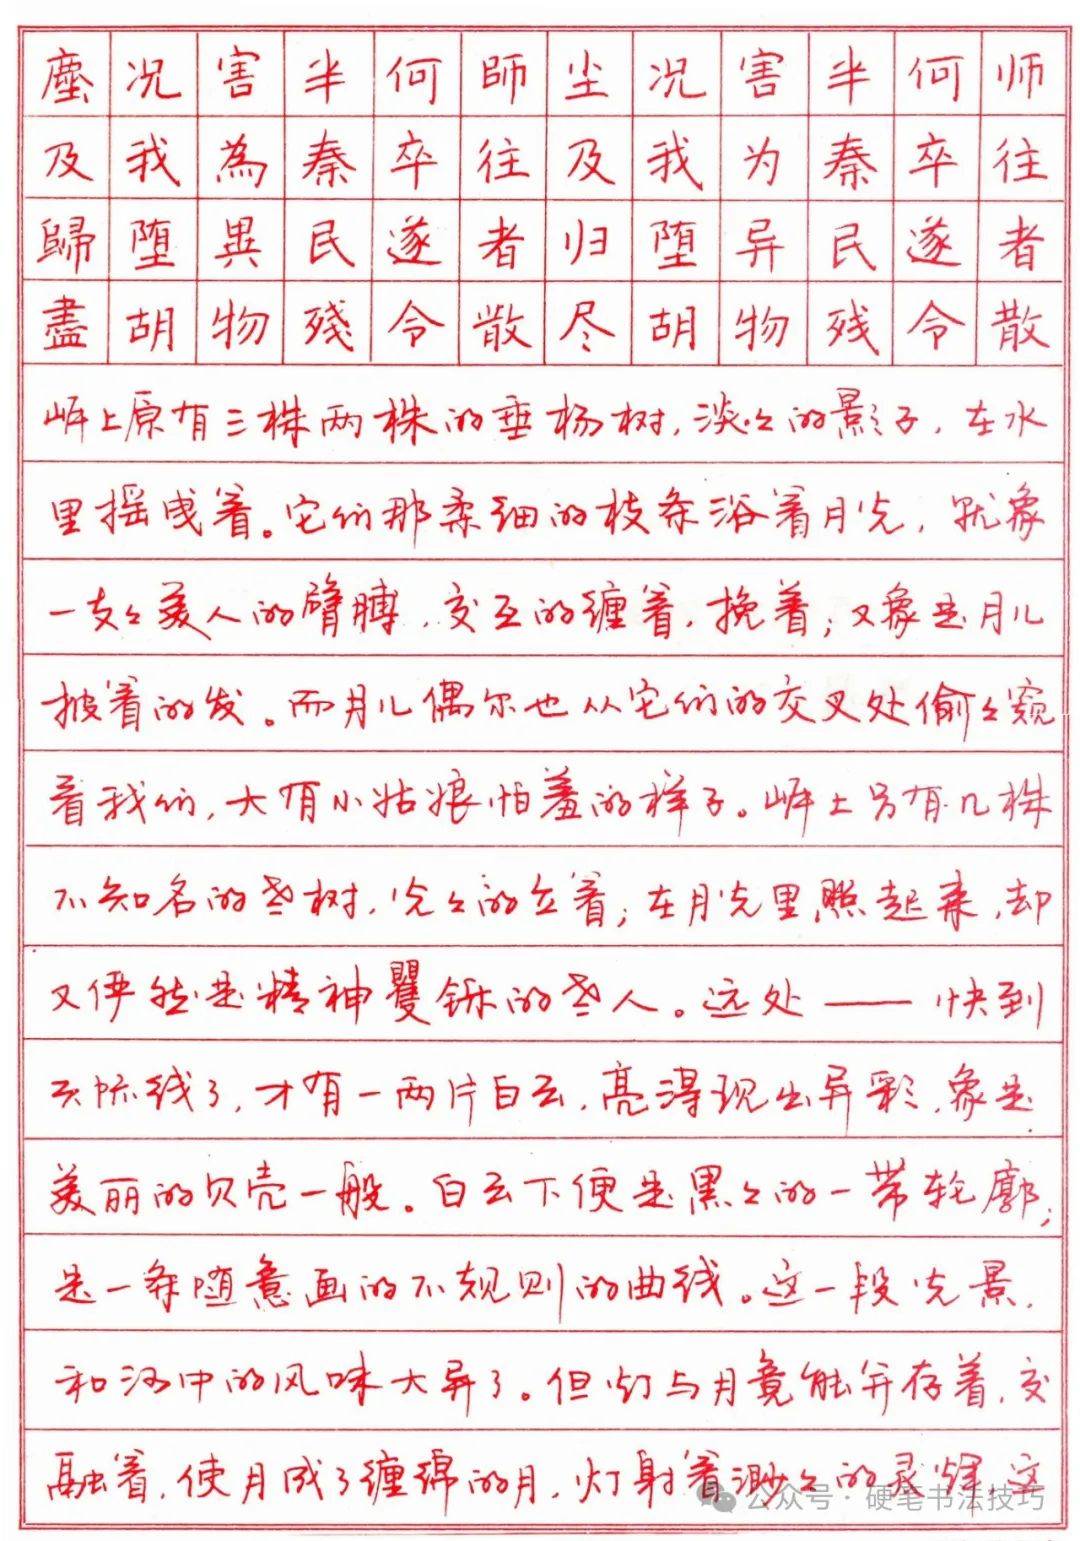 塵况害半何師尘况害半何师
及我為秦卒往及我为秦卒往
歸堕異民遂者归堕异民遂者
盡胡物殘令散尽胡物残令散
岸上原有三株两株的垂杨树,淡々的影子,在水
里摇曳着。它们那柔细的枝条浴着月光,就象
一支々美人的臂膊,交互的缠着,挽着;又象是月儿
披着的发。而月儿偶尔也从它们的交叉处偷々窥
看我们,大有小姑娘怕羞的样子。岸上另有几株
不知名的老树,光々的立着;在月光里照起来,却
又俨然是精神矍铄的老人。远处——快到
天际线了,才有一两片白云,亮得现出异彩,象是
美丽的贝壳一般。白云下便是黑々的一带轮廓;
是一条随意画的不规则的曲线。这一段光景,
和河中的风味大异了。但灯与月竟能并存着,交
融着,使月成了缠绵的月,灯射着渺々的灵辉,这
公众号·硬笔书法技巧